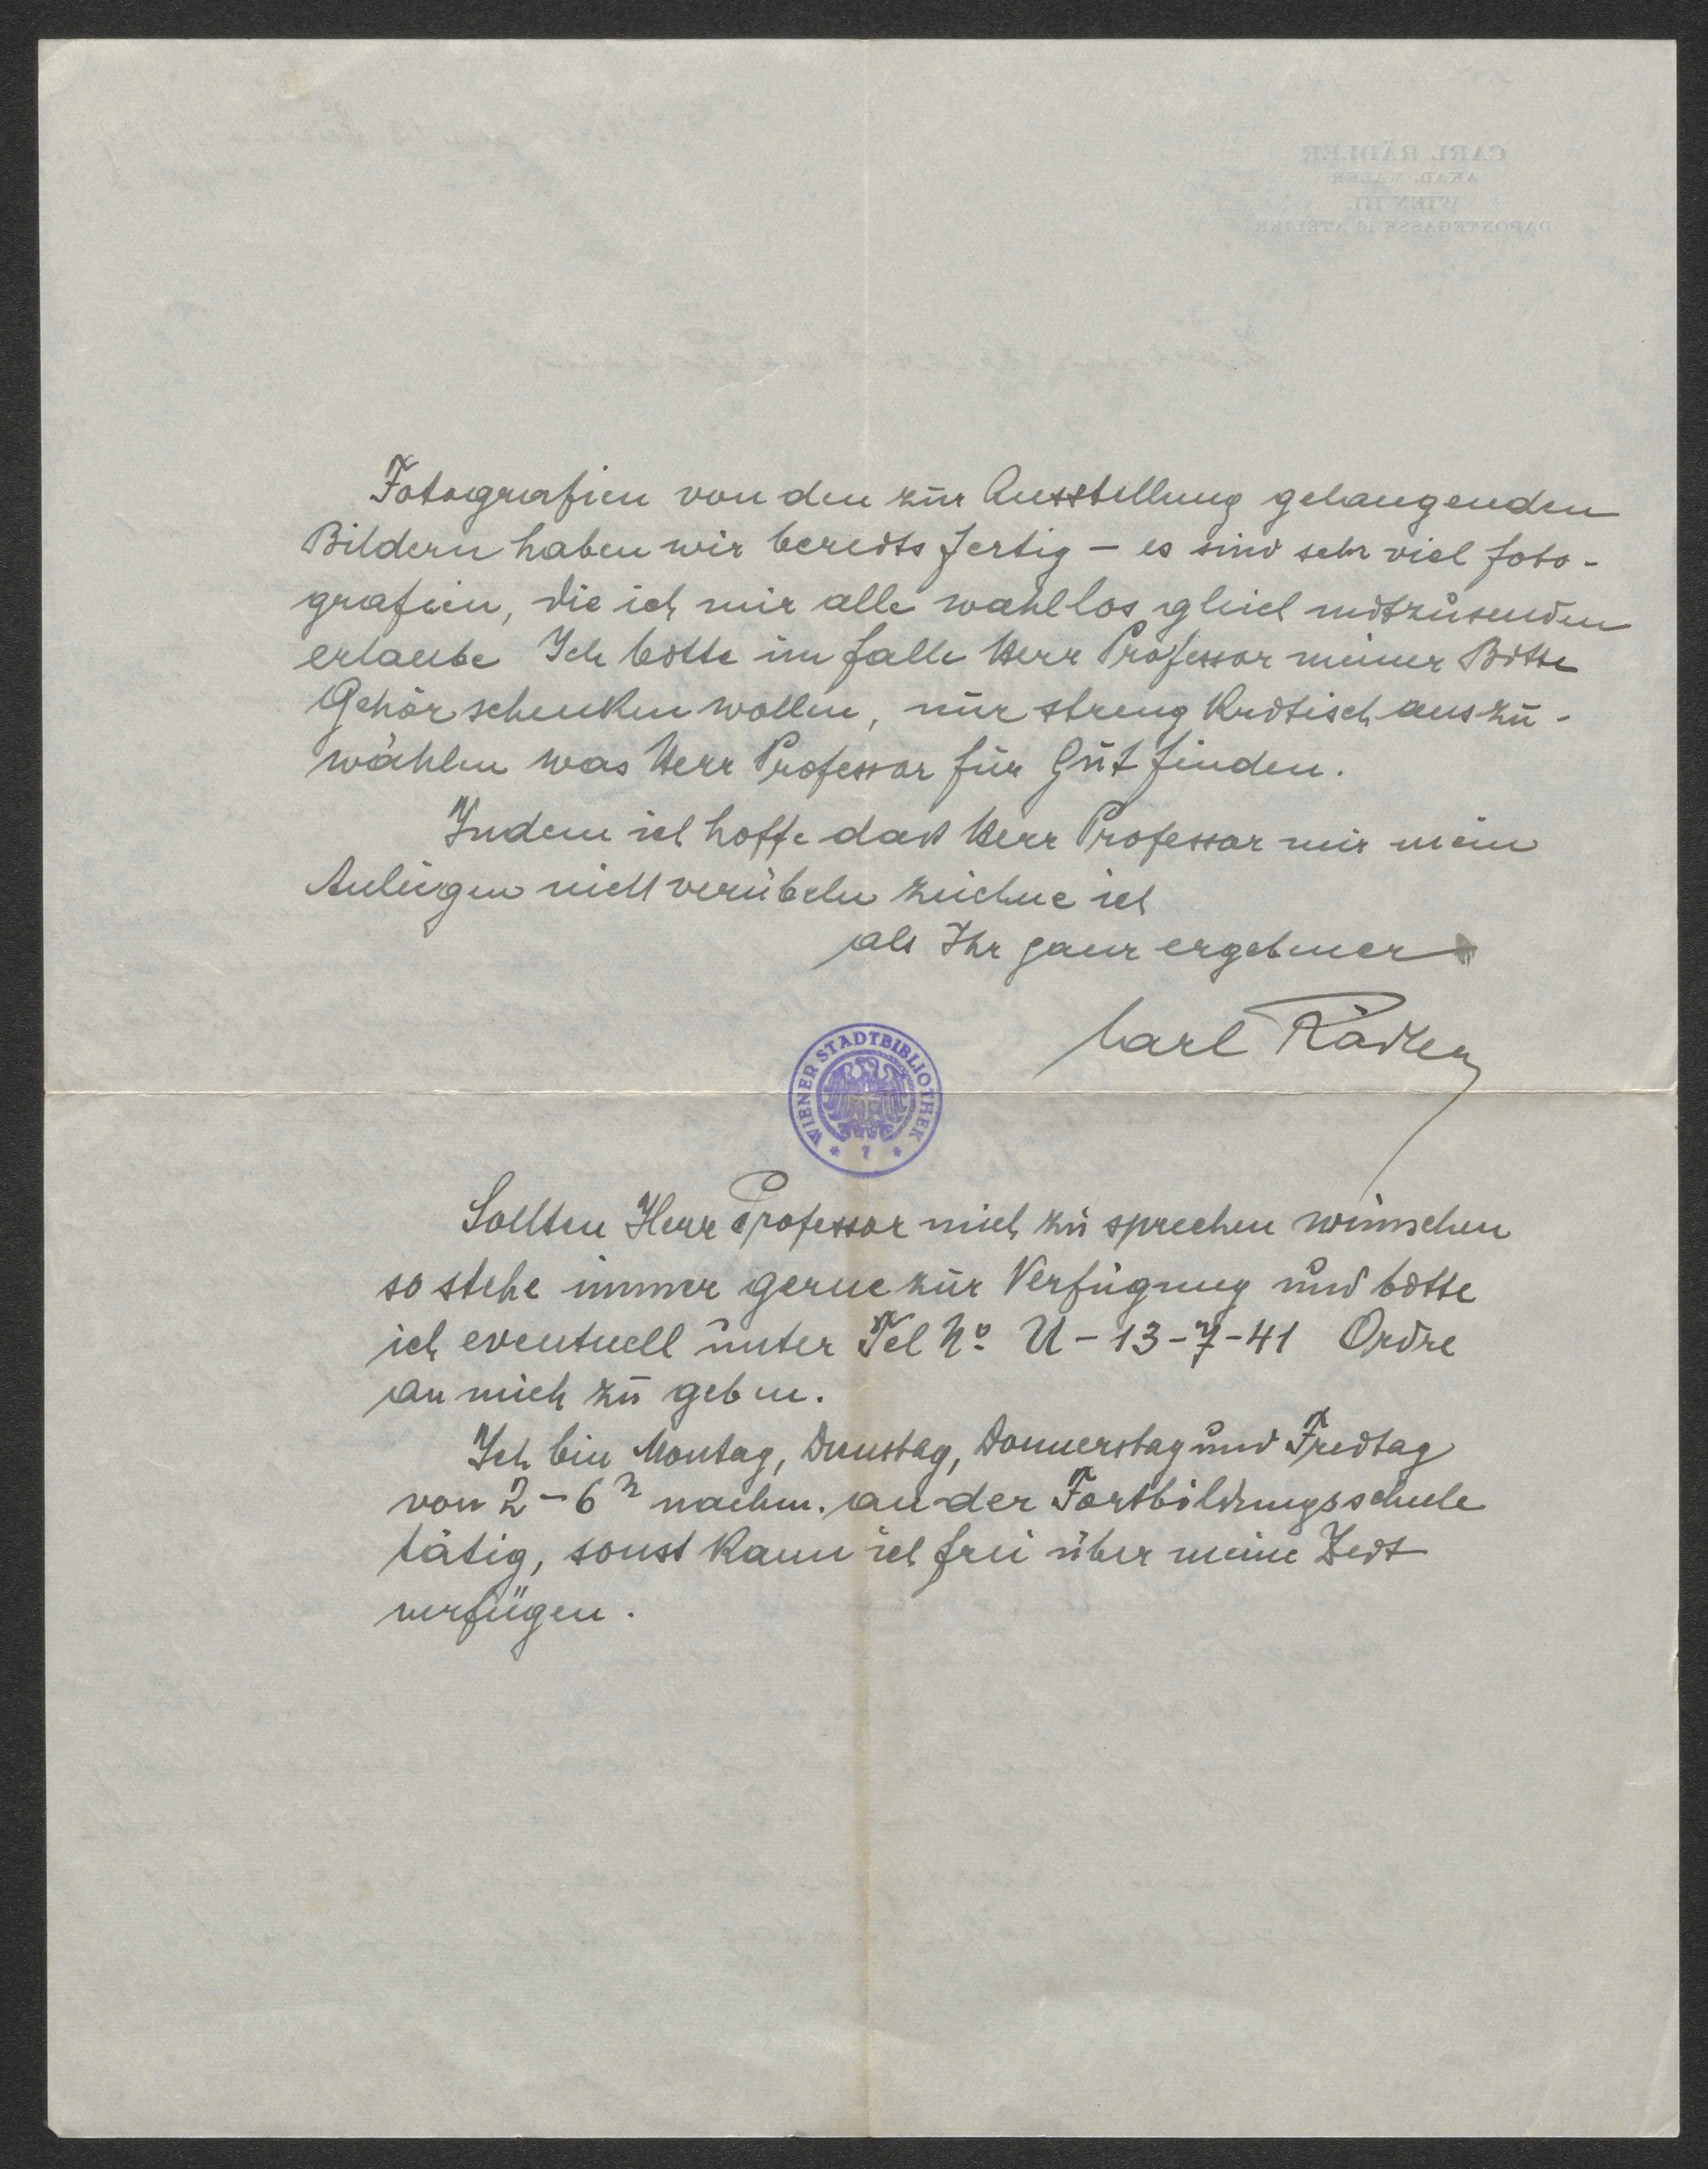 Fotografien von den zur Ausstellung gelangenden
Bildern haben wir bereits fertig – es sind sehr viel Foto-
grafien, die ich mir alle wahllos gleich mitzusenden
erlaube Ich bitte im falle Herr Professor meiner Bitte
Gehör schenken wollen, nur streng kritisch auszu-
wählen was Herr Professor für Gut finden.
Indem ich hoffe daß Herr Professor mir mein
Anliegen nicht verübeln zeichne ich
als Ihr ganz ergebener
Carl Rädler
WIENER STADTBIBLIOTHEK
* 7 *
Sollten Herr Professor mich zu sprechen wünschen
so stehe immer gerne zur Verfügung und bitte
ich eventuell unter Tel No U-13-7-41 Ordre
an mich zu geben.
Ich bin Montag, Dienstag, Donnerstag und Freitag
von 2-6h nachm. an der Fortbildungsschule
tätig, sonst kann ich frei über meine Zeit
verfügen.